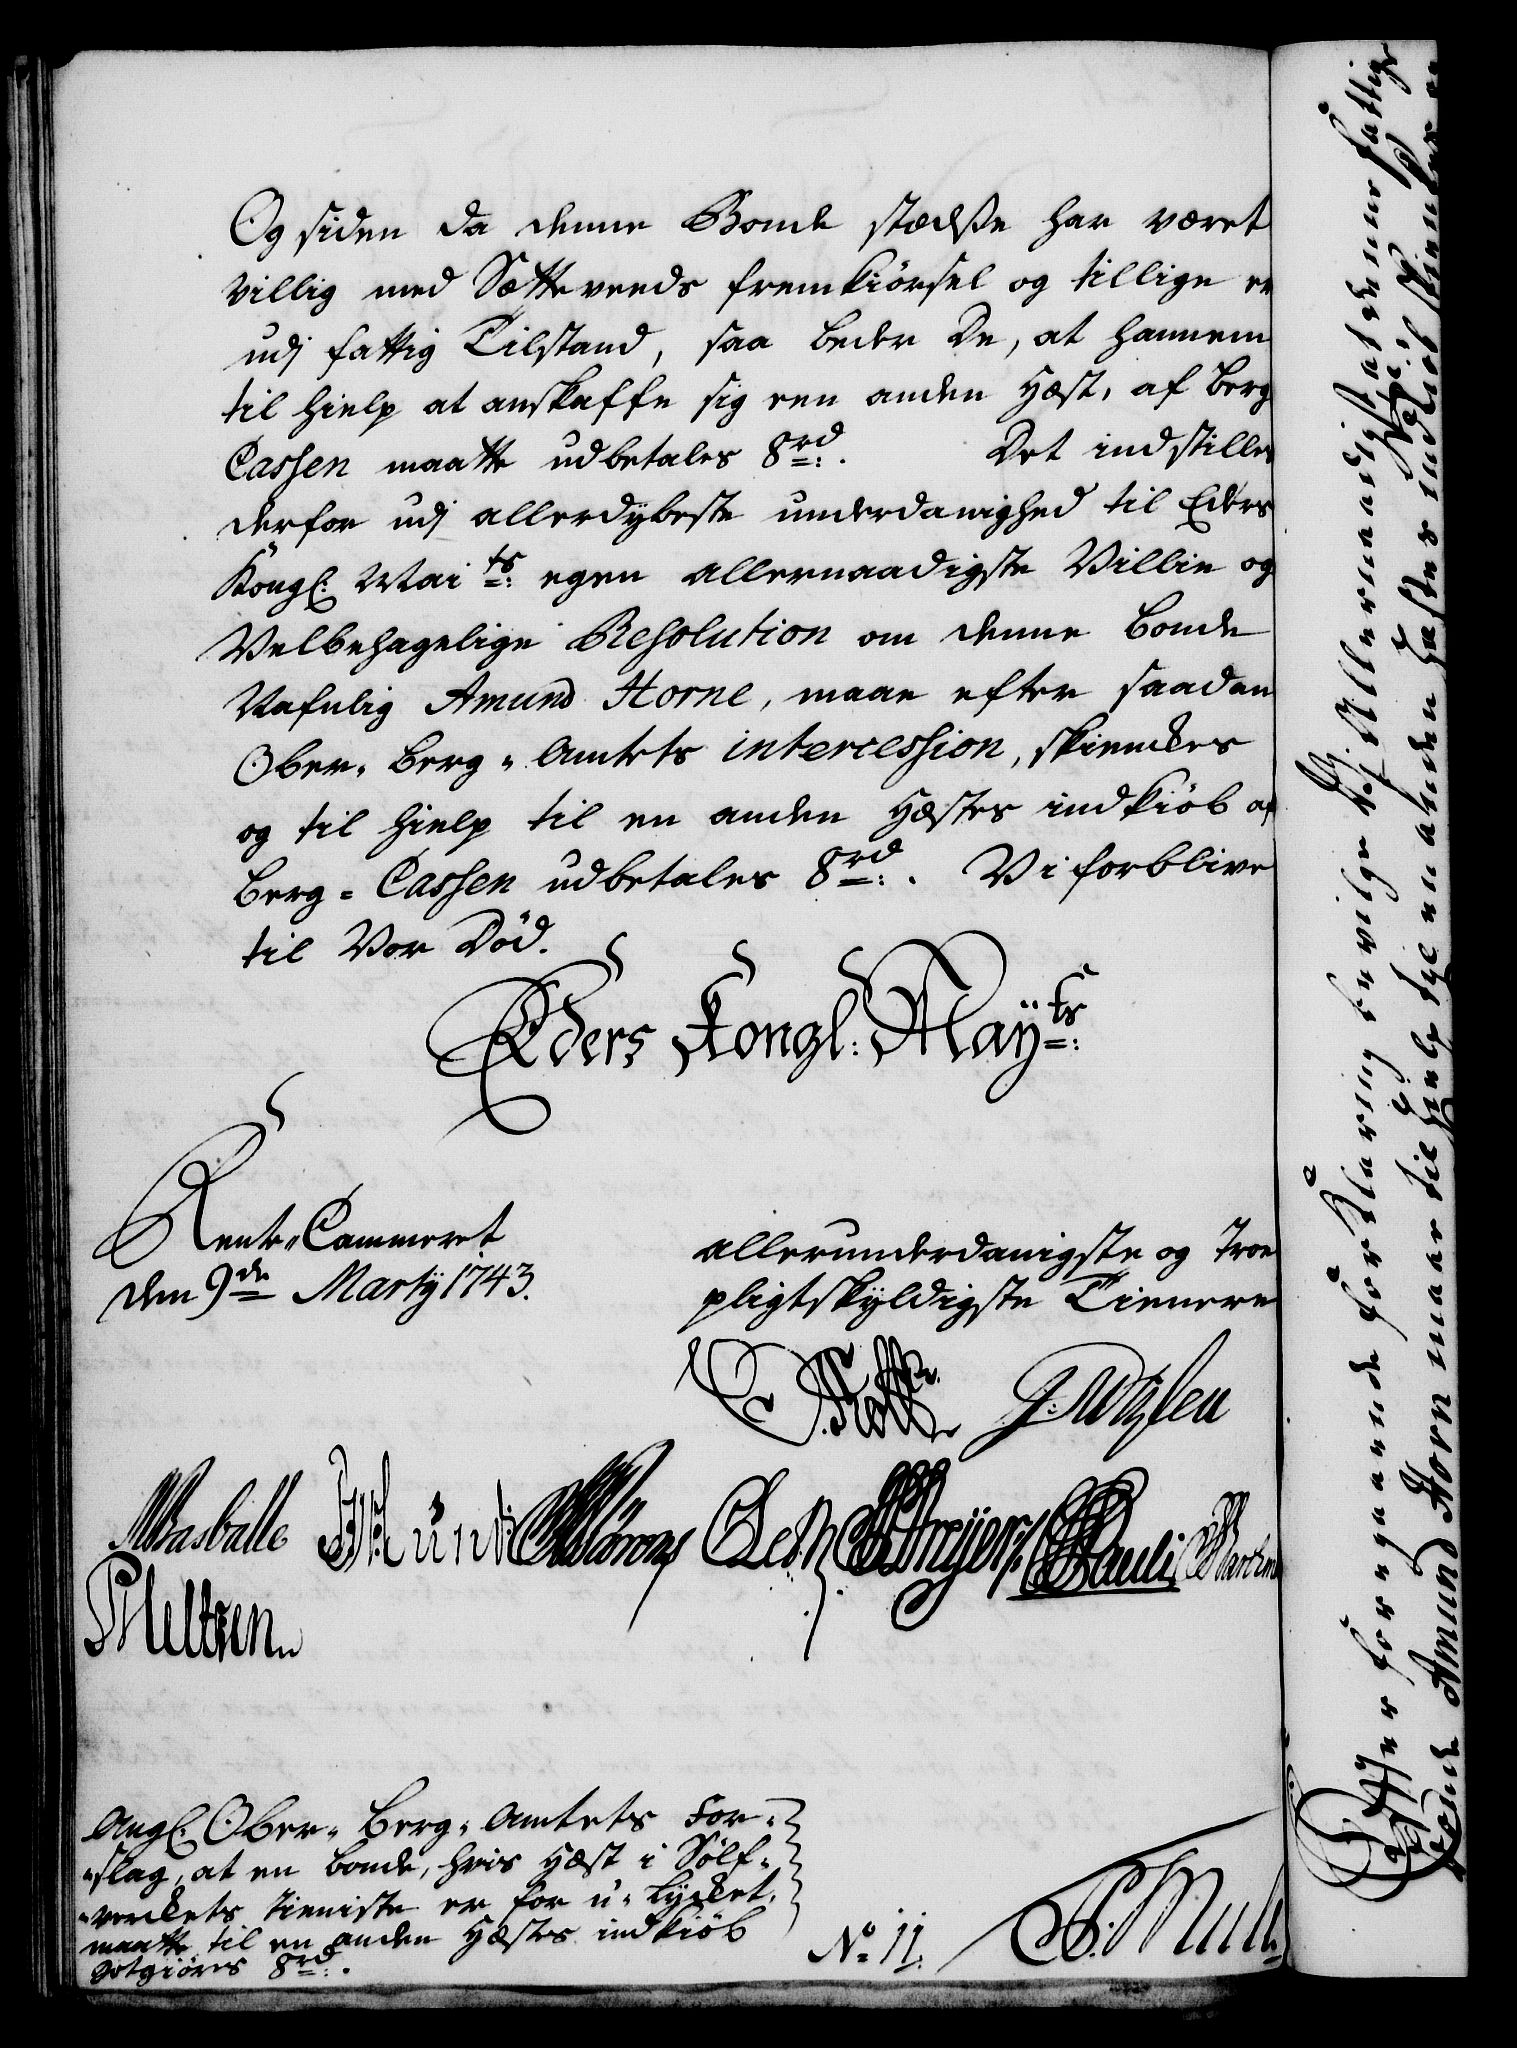 Og siden da denne Bonde stædsse har været
villig med Sætteveeds fremkiørsel og tillige er
udj fattig Tilstand, saa beder De, at hannem
til hielp at anskaffe sig een anden Hæst, af Berg
Cassen maatte udbetales 8rd. Det indstilles
derfor udj allerdybeste underdanighed til Eders
Kongl: Maits: egen allernaadigste Villie og
Velbehagelige Resolution om denne Bonde
Nafnlig Amund Horne, maae efter saadan
Ober-Berg-Amtets intercession, skienckes
og til hielp til en anden Hæstes indkiøb af
Berg-Cassen udbetales 8rd. Vi forblive
til Vor Død.
Eders Kongl: Mayts:
Rente-Cammeret
den 9de Martij 1743.
allerunderdanigste og Troe
pligtskyldigste Tienere
Pauli
Ang: Ober-Berg-Amtets For-
-slag, at en bonde, hvis Hæst i Sølf-
-verckets tieniste er for u-lycket,
maatte til en anden Hæstes indkiøb
Gotgiøres 8rd.
No 11.
Efter foregaaende forklaring bevilge Vj Allernaadigst at denne fattige
Amund Horn maae til hielp til en anden hæstes indkiøb skienckes